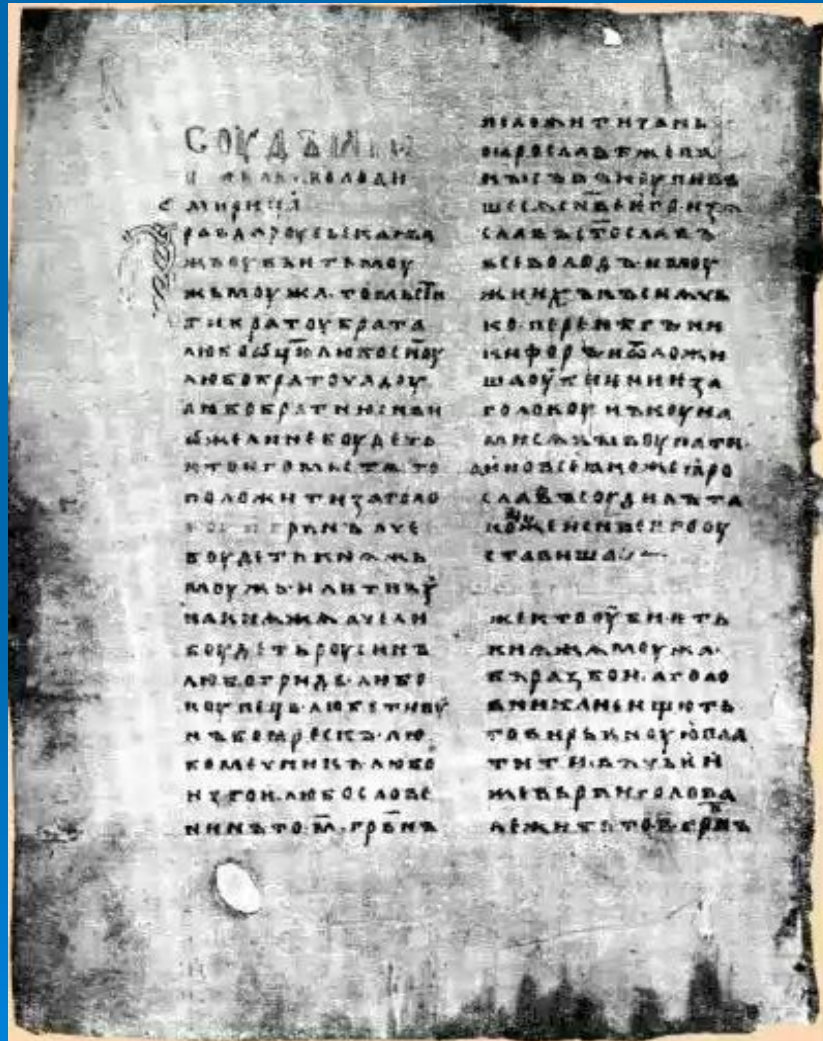 СОУДЪ
ВОЛОДИ
МИРИЦѦ
РАВДА РОУСЬСКАꙖ
ЖЬ ОУБЬИТЬ МОУ
ЖЬ МОУЖА ТО МЬСТИ
ТИ БРАТОУ БРАТА
ЛЮБО ѾЦЮ ЛЮБО СН҃ОУ
ЛЮБО БРАТОУЧАДОУ
ЛЮБО БРАТНЮ СН҃ВИ
ѠЖЕ ЛИ НЕ БОУДЕТЬ
КТО ꙖГО МЬСТѦ ТО
ПОЛОЖИТИ ЗА ГОЛО
ГРВ҃НЪ АЧЕ
БОУДЕТЬ КНѦЖЬ
МОУЖЬ ИЛИ ТИВОУ
НА КНѦЖѦ АЧЕ ЛИ
БОУДЕТЬ РОУСИНЪ
ЛЮБО ГРИДЬ ЛЮБО
КОУПЕЦЬ ЛЮБО ТИВОУ
НЪ БОꙖРЕСКЪ ЛЮ
БО МЕЧНИКЪ ЛЮБО
ИЗГОИ ЛЮБО СЛОВЕ
НИНЪ ТО М҃ ГРВ҃НЪ
ПОЛОЖИТИ ЗА НЬ
ПО ꙖРОСЛАВѢ ЖЕ ПА
КЫ СЪВЪКОУПИВЪ
ШЕСѦ СН҃ВЕ ѤГО ИЗѦ
СЛАВЪ СТ҃ОСЛАВЪ
ВСЕВОЛОДЪ И МОУ
ЖИ ИХЪ КЪСНѦЧЬ
КО ПЕРЕНѢГЪ НИ
КИФОРЪ И ѾЛОЖИ
ША ОУБИѤНИѤ ЗА
ГОЛОВОУ НЪ КОУНА
МИ СѦ ВЫКОУПАТИ
А ИНО ВСЕ ꙖКОЖЕ ꙖРО
СЛАВЪ СОУДИЛЪ ТА
КОЖЕ И СН҃ВЕ ѤГО ОУ
СТАВИША
ЖЕ КТО ОУБИѤТЬ
КНѦЖА МОУЖА
ВЪ РАЗБОИ А ГОЛО
ВНИКА НЕ ИЩЮТЬ
ТО ВИРЬВНОУЮ ПЛА
ТИТИ ВЪ ЧЬѤИ
ЖЕ ВЬРВИ ГОЛОВА
ЛЕЖИТЬ ТО П҃ ГРВ҃НЪ